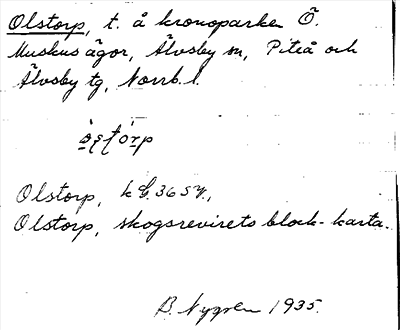 Olstorp, t. å kronoparken Ö.
Muskus ägor, Älvsby sn, Piteå och
Älvsby tg, Norrb. l.
Olstorp, k G. 36 SV.,
Olstorp, skogsrevirets block-karta.
B. Nygren 1935.